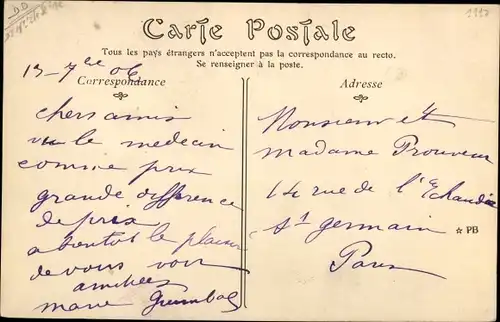 Carte Postale
Tous les pays étrangers n'acceptent pas la correspondance au recto.
Se renseigner à la poste.
13 - 7bre 06
Correspondance
chers amis
vu le medecin
comme prix
grande difference
de prix
a bientot le plaisir
de vous voir
amitiées
marie
Adresse
Monsieur et
madame Prouveur
14 rue de l'Echaudé
St germain
Paris
* PB
D.D